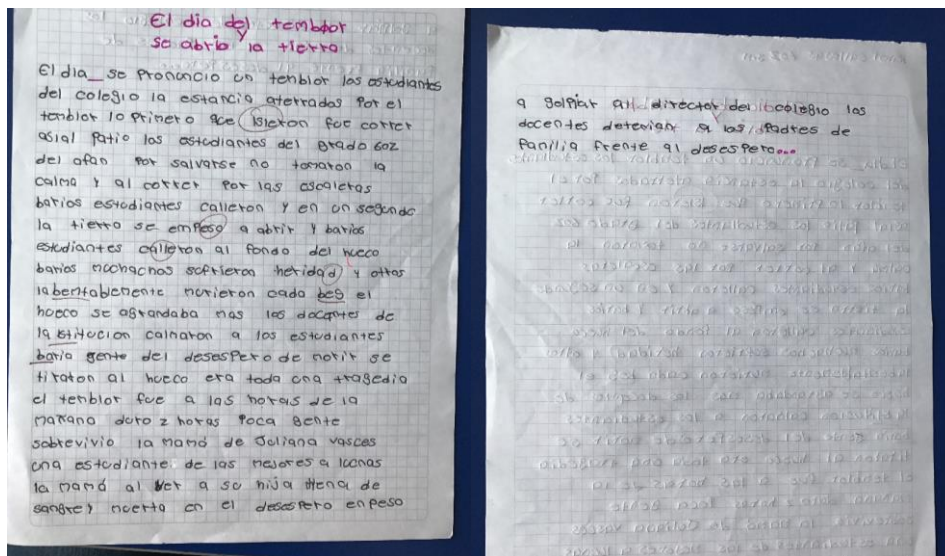 El dia del temblor
y
se abrio la tierra
El dia se pronuncio un tenblor los estudiantes
del colegio la estancia aterrados por el
tenblor lo primero que isieron fue correr
asial patio los estudiantes del grado 602
del afan por salvarse no tomaron la
calma y al correr por las escaleras
barios estudiantes calleron y en un segundo
la tierro se empeso a abrir y barios
estudiantes calleron al fondo del hueco
barios muchachos sufrieron heridad y otros
labentablemente murieron cada bes el
hueco se agrandaba mas los docentes de
la stitucion calmaron a los estudiantes
baria gente del desespero de morir se
tiraron al hueco era toda una tragedia
el tenblor fue a las horas de la
mañana duro 2 horas poca gente
sobrevivio la mamá de Juliana vasces
una estudiante de las mejores alunas
la mamá al ver a su hija llena de
sangre y muerta en el desespero enpeso
a golpiar al director del colegio los
docentes detenian a los padres de
familia frente al desespero...